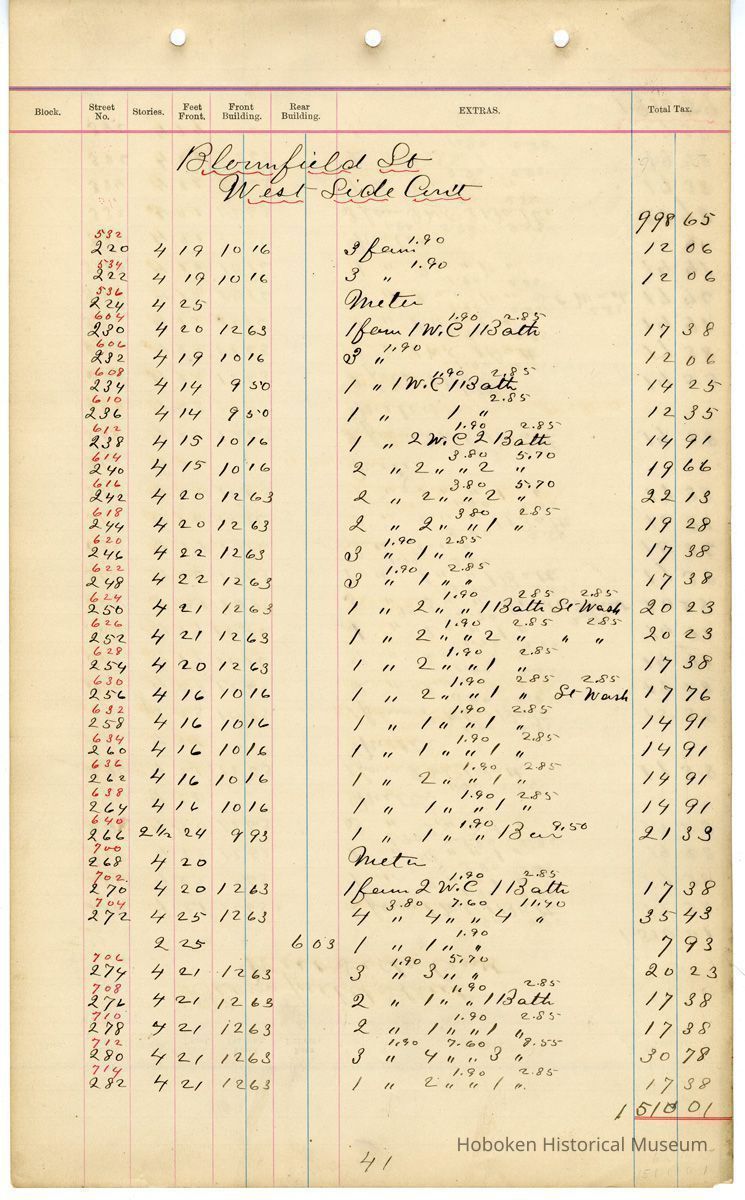 Block. Street No. Stories. Feet Front. Front Building. Rear Building. EXTRAS. Total Tax.
Bloomfield St
West Side Con't
998 65
532
220 4 19 10 16 3 fam 1.90 12 06
534
222 4 19 10 16 3 " 1.90 12 06
536
224 4 25 Meter
604
230 4 20 12 63 1 fam 1 W.C 1.90 1 Bath 2.85 17 38
606
232 4 19 10 16 3 " 1.90 12 06
608
234 4 14 9 50 1 " 1 W.C 1.90 1 Bath 2.85 14 25
610
236 4 14 9 50 1 " 1 " 2.85 12 35
612
238 4 15 10 16 1 " 2 W.C 1.90 2 Bath 2.85 14 91
614
240 4 15 10 16 2 " 2 " " 3.80 2 " 5.70 19 66
616
242 4 20 12 63 2 " 2 " " 3.80 2 " 5.70 22 13
618
244 4 20 12 63 2 " 2 " " 3.80 1 " 2.85 19 28
620
246 4 22 12 63 3 " 1.90 1 " " 2.85 17 38
622
248 4 22 12 63 3 " 1.90 1 " " 2.85 17 38
624
250 4 21 12 63 1 " 2 " " 1.90 1 Bath 2.85 St Wash 2.85 20 23
626
252 4 21 12 63 1 " 2 " " 1.90 2 " 2.85 " " 2.85 20 23
628
254 4 20 12 63 1 " 2 " " 1.90 1 " 2.85 17 38
630
256 4 16 10 16 1 " 2 " " 1.90 1 " 2.85 St Wash 2.85 17 76
632
258 4 16 10 16 1 " 1 " " 1.90 1 " 2.85 14 91
634
260 4 16 10 16 1 " 1 " " 1.90 1 " 2.85 14 91
636
262 4 16 10 16 1 " 2 " " 1.90 1 " 2.85 14 91
638
264 4 16 10 16 1 " 1 " " 1.90 1 " 2.85 14 91
640
266 2 1/2 24 9 93 1 " 1 " " 1.90 1 Bar 9.50 21 33
700
268 4 20 Meter
702
270 4 20 12 63 1 fam 2 W.C 1.90 1 Bath 2.85 17 38
704
272 4 25 12 63 4 " 3.80 4 " " 7.60 4 " 11.40 35 43
2 25 6 03 1 " 1 " " 1.90 7 93
706
274 4 21 12 63 3 " 1.90 3 " " 5.70 20 23
708
276 4 21 12 63 2 " 1 " " 1.90 1 Bath 2.85 17 38
710
278 4 21 12 63 2 " 1 " " 1.90 1 " 2.85 17 38
712
280 4 21 12 63 3 " 1.90 4 " " 7.60 3 " 8.55 30 78
714
282 4 21 12 63 1 " 2 " " 1.90 1 " 2.85 17 38
1 510 01
Hoboken Historical Museum
41